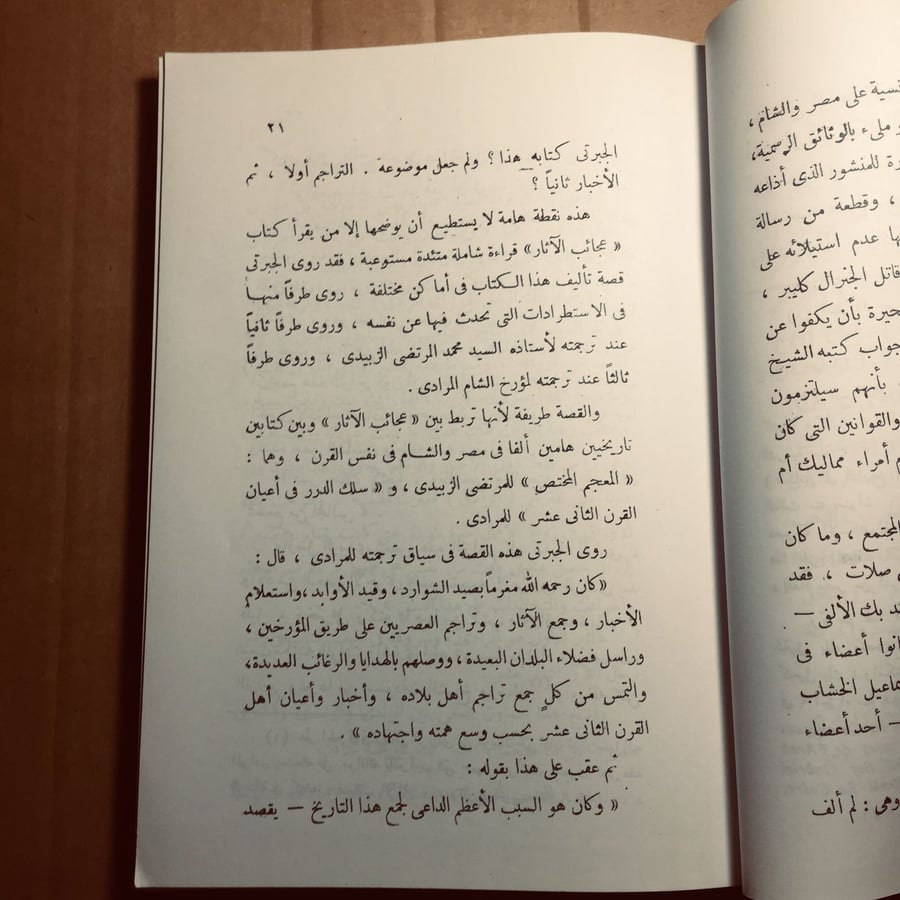 نسية على مصر والشام ،
و ملىء بالوثائق الرسمية،
رة للمنشور الذى أذاعه
، وقطعة من رسالة
ها عدم استيلائه على
قاتل الجنرال كليبر ،
حيرة بأن يكفوا عن
جواب كتبه الشيخ
بأنهم سيلتزمون
والقوانين التى كان
م أمراء مماليك أم
المجتمع ، وما كان
صلات ، فقد
د بك الألفى —
انوا أعضاء فى
ماعيل الخشاب
— أحد أعضاء
وهى : لم ألف
٢١
الجبرتى كتابه هذا ؟ ولم جعل موضوعه . التراجم أولا ، ثم
الأخبار ثانياً ؟
هذه نقطة هامة لا يستطيع أن يوضحها إلا من يقرأ كتاب
« عجائب الآثار» قراءة شاملة متئدة مستوعبة ، فقد روى الجبرتى
قصة تأليف هذا الكتاب فى أماكن مختلفة ، روى طرفاً منها
فى الاستطرادات التى تحدث فيها عن نفسه ، وروى طرفاً ثانياً
عند ترجمته لأستاذه السيد محمد المرتضى الزبيدى ، وروى طرفاً
ثالثاً عند ترجمته لمؤرخ الشام المرادى .
والقصة طريفة لأنها تربط بين « عجائب الآثار » وبين كتابين
تاريخيين هامين ألفا فى مصر والشام فى نفس القرن ، وهما :
« المعجم المختص » للمرتضى الزبيدى ، و « سلك الدرر فى أعيان
القرن الثانى عشر » للمرادى .
روى الجبرتى هذه القصة فى سياق ترجمته للمرادى ، قال :
«كان رحمه الله مغرماً بصيد الشوارد ، وقيد الأوابد ،واستعلام
الأخبار ، وجمع الآثار ، وتراجم العصريين على طريق المؤرخين ،
وراسل فضلاء البلدان البعيدة ، ووصلهم بالهدايا والرغائب العديدة،
والتمس من كلٍ جمع تراجم أهل بلاده ، وأخبار وأعيان أهل
القرن الثانى عشر بحسب وسع همته واجتهاده » .
ثم عقب على هذا بقوله :
« وكان هو السبب الأعظم الداعى لجمع هذا التاريخ — يقصد